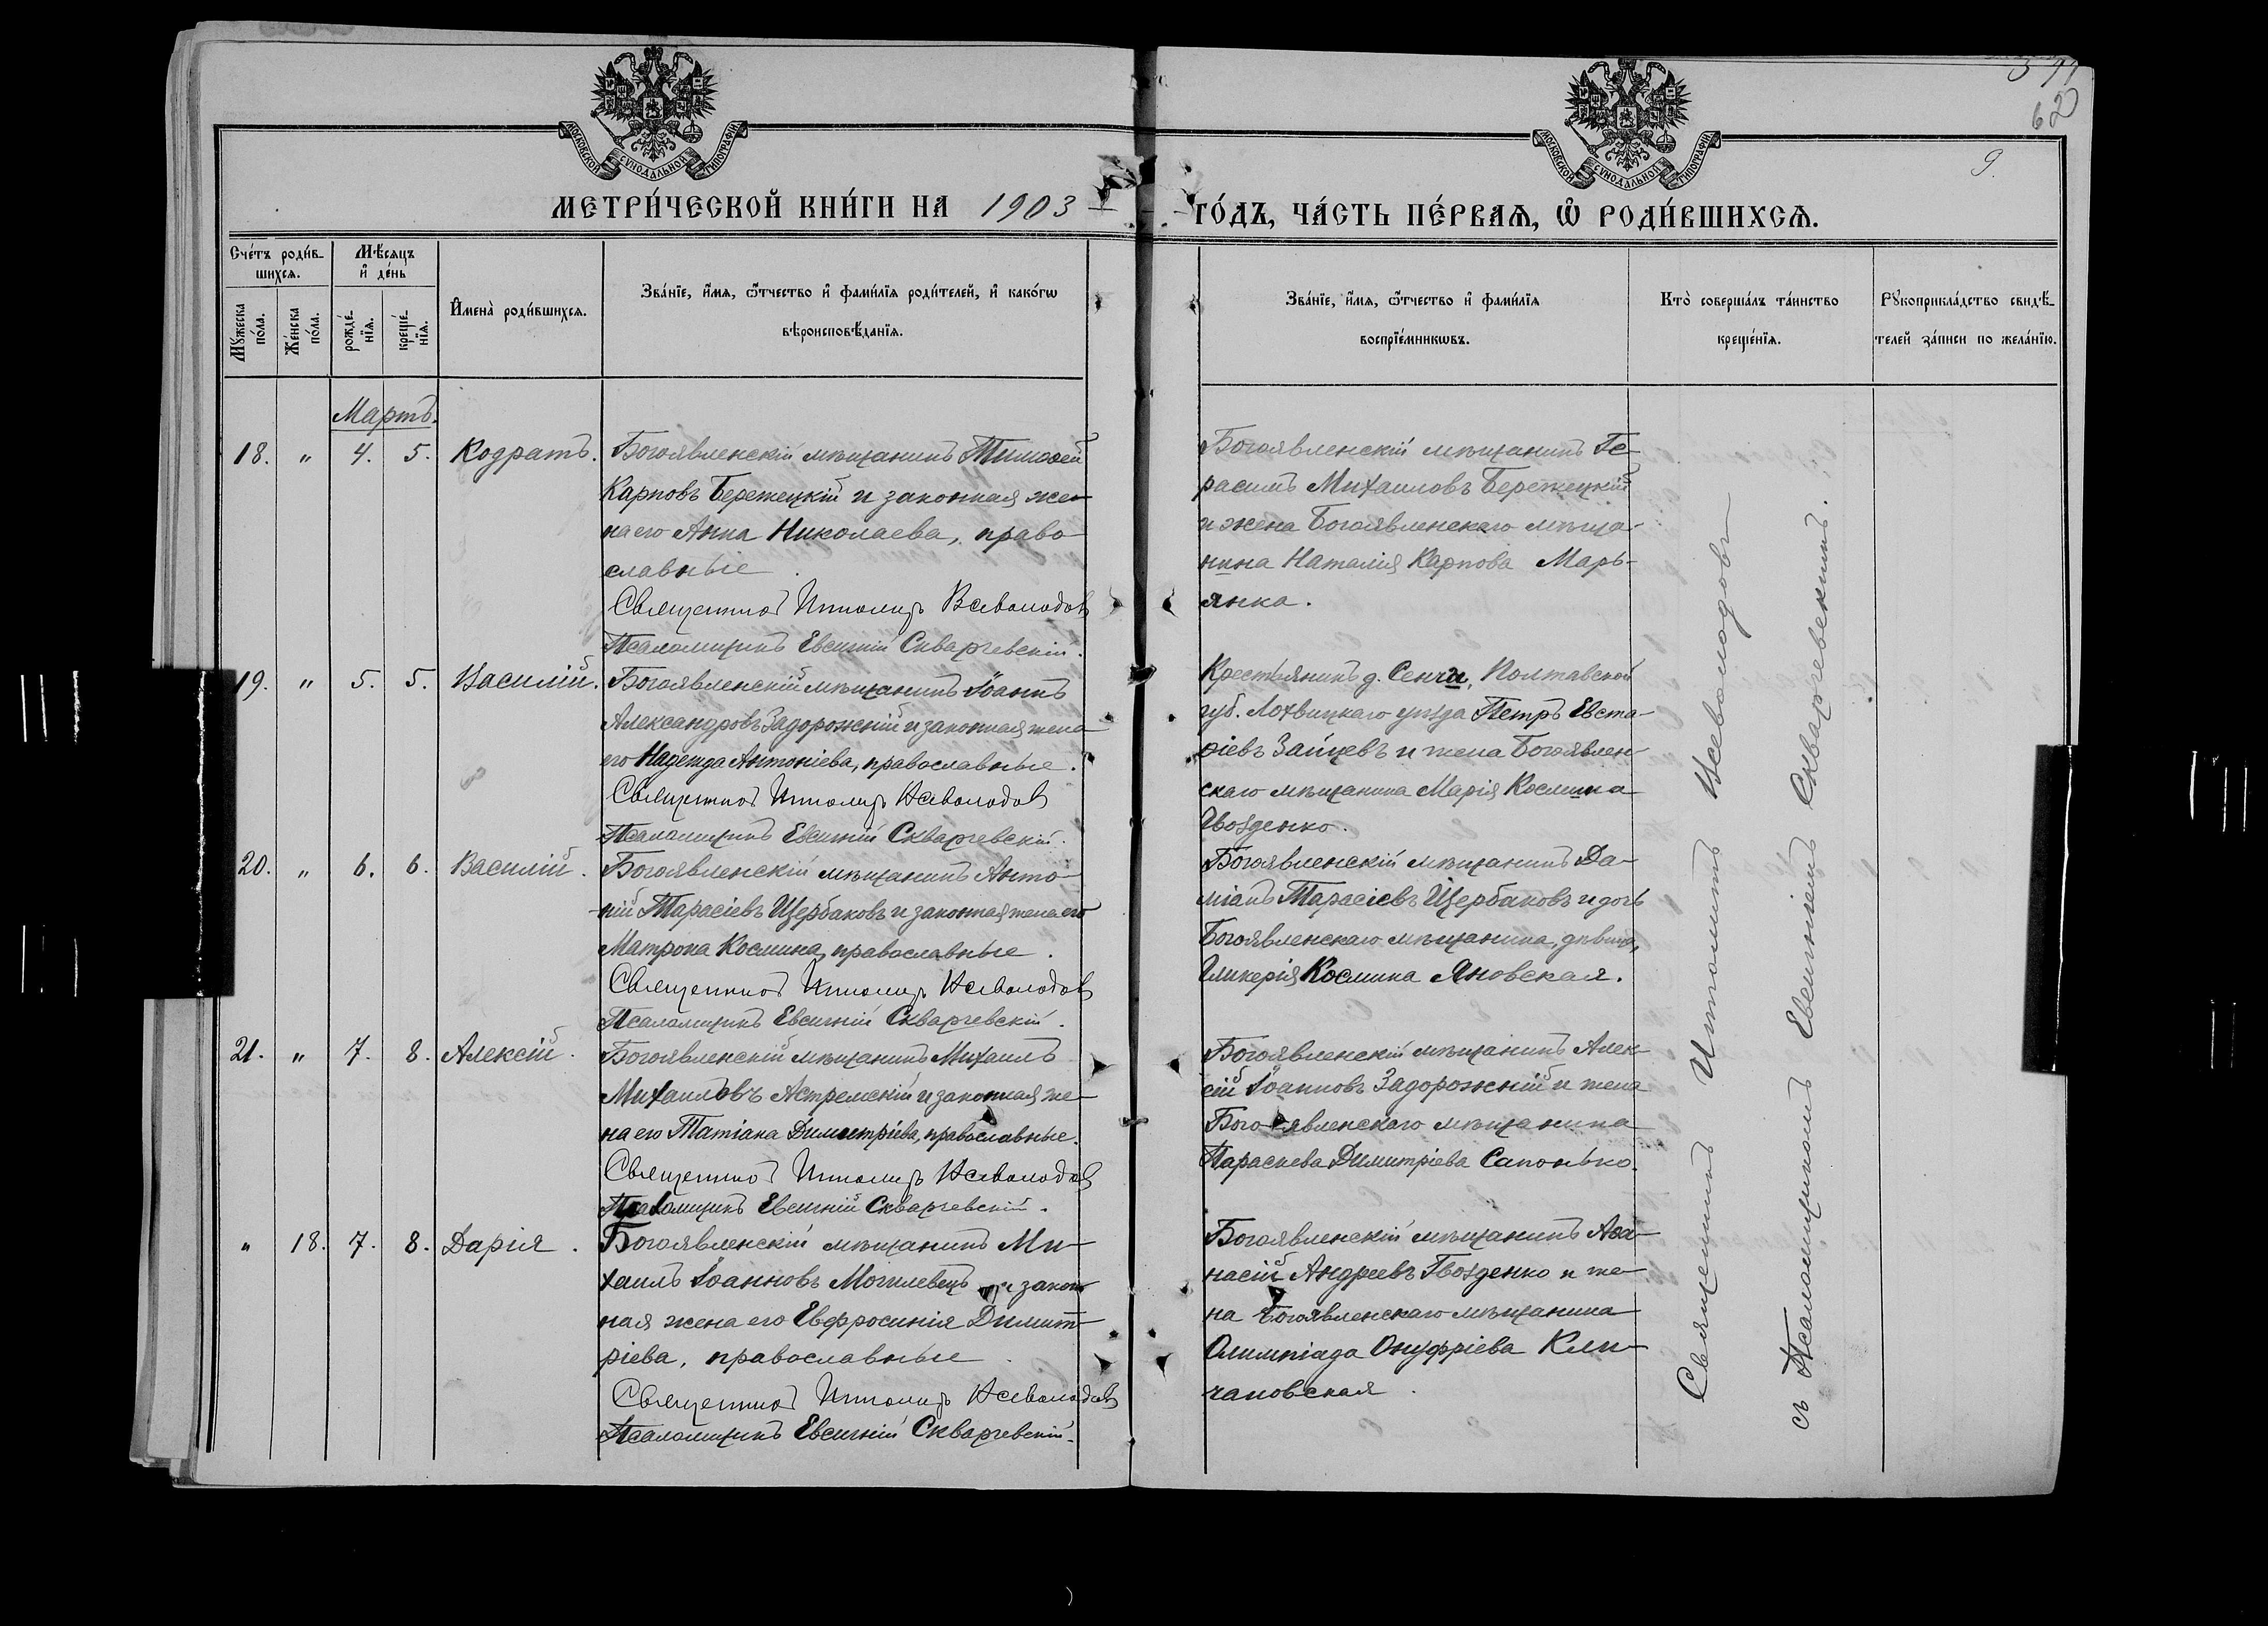 599
62
9.
МОСКОВСКОЙ СѴНОДАЛЬНОЙ ТИПОГРАФІИ
МОСКОВСКОЙ СѴНОДАЛЬНОЙ ТИПОГРАФІИ
МЕТРИ́ЧЕСКОЙ КНИ́ГИ НА 1903
ГО́ДЪ, ЧА́СТЬ ПЕ́РВАѦ, Ѽ РОДИ́ВШИХСѦ.
Сче́тъ роди́в-
шихсѧ.
Мѣ́сяцъ
и҆ де́нь
Мꙋ́жеска
по́ла.
Же́нска
по́ла.
рожде́-
нїѧ.
креще́-
нїѧ.
И҆мена̀ роди́вшихсѧ.
Зва́нїе, и҆́мѧ, ѻ҆́тчество и҆ фами́лїѧ роди́телей, и҆ како́гѡ
вѣроисповѣ́данїѧ.
Зва́нїе, и҆́мѧ, ѻ҆́тчество и҆ фами́лїѧ
воспрїе́мникѡвъ.
Кто̀ соверша́лъ та́инство
креще́нїѧ.
Рꙋкоприкла́дство свидѣ́-
телей за́писи по жела́нїю.
Мартъ.
18. " 4. 5. Кодратъ.
Богоявленскій мѣщанинъ Тимоѳей
Карповъ Бережецкій и законная же-
на его Анна Николаева, право-
славные
Священникъ Ипполитъ Всеволодовъ
Псаломщикъ Евгеній Скваржевскій.
Богоявленскій мѣщанинъ Ге-
расимъ Михаиловъ Бережецкій
и жена Богоявленскаго мѣща-
нина Наталія Карпова Марь-
янка.
19. " 5. 5. Василій.
Богоявленскій мѣщанинъ Іоаннъ
Александровъ Задорожній и законная жена
его Надежда Антоніева, православные.
Священникъ Ипполитъ Всеволодовъ
Псаломщикъ Евгеній Скваржевскій.
Крестьянинъ д. Сенчи, Полтавской
губ. Лохвицкаго уѣзда Петръ Евста-
ѳіевъ Зайцевъ и жена Богоявлен-
скаго мѣщанина Марія Космина
Гвозденко.
20. " 6. 6. Василій.
Богоявленскій мѣщанинъ Анто-
ній Тарасіевъ Щербаковъ и законная жена его
Матрона Космина, православные.
Священникъ Ипполитъ Всеволодовъ
Псаломщикъ Евгеній Скваржевскій.
Богоявленскій мѣщанинъ Да-
міанъ Тарасіевъ Щербаковъ и дочь
Богоявленскаго мѣщанина, дѣвица,
Гликерія Космина Яновская.
21. " 7. 8. Алексій.
Богоявленскій мѣщанинъ Михаилъ
Михаиловъ Астремскій и законная же-
на его Татіана Димитріева, православные.
Священникъ Ипполитъ Всеволодовъ
Псаломщикъ Евгеній Скваржевскій.
Богоявленскій мѣщанинъ Алек-
сій Іоанновъ Задорожній и жена
Богоявленскаго мѣщанина
Параскева Димитріева Сапонько.
" 18. 7. 8. Дарія.
Богоявленскій мѣщанинъ Ми-
хаилъ Іоанновъ Могилевецъ и закон-
ная жена его Евфросинія Димит-
ріева, православные
Священникъ Ипполитъ Всеволодовъ
Псаломщикъ Евгеній Скваржевскій.
Богоявленскій мѣщанинъ Аѳа-
насій Андреевъ Гвозденко и же-
на Богоявленскаго мѣщанина
Олимпіада Онуфріева Кли-
чановская.
Священникъ Ипполитъ Всеволодовъ
съ Псаломщикомъ Евгеніемъ Скваржевскимъ.